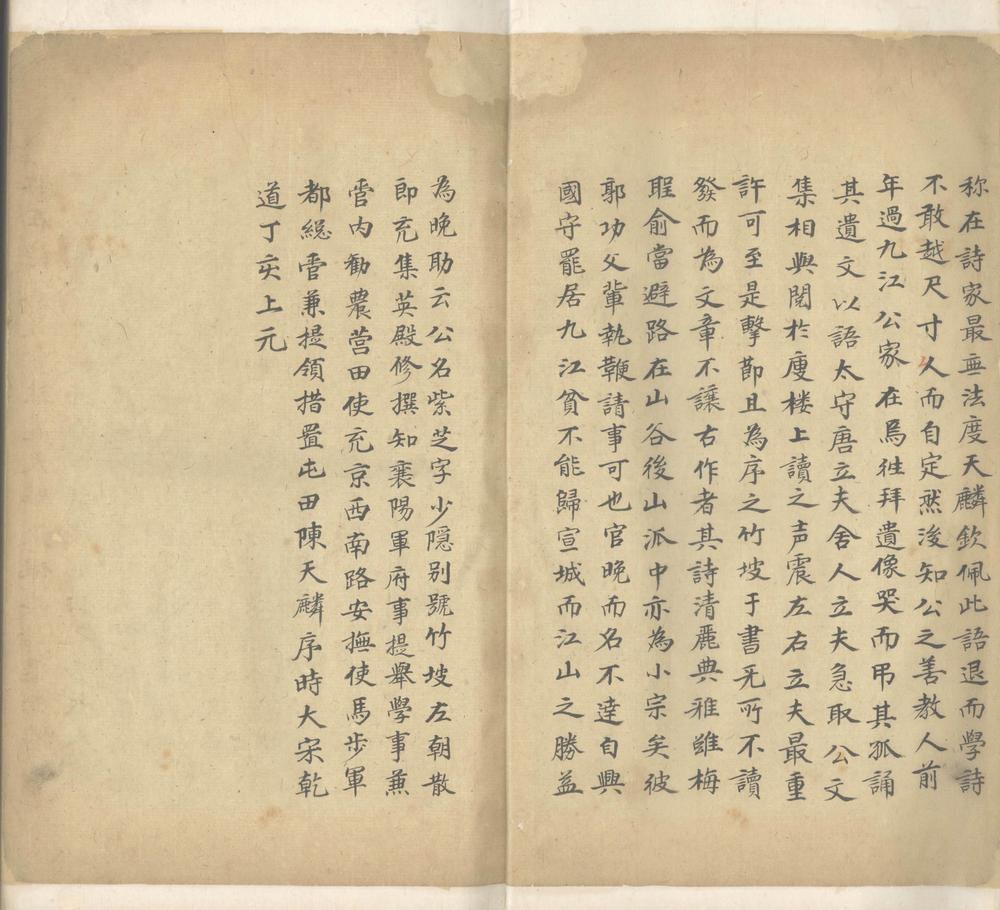 称在詩家最無法度天麟欽佩此語退而學詩
不敢越尺寸久而自定然後知公之善教人前
年過九江公家在焉徃拜遺像哭而弔其孤誦
其遺文以語太守唐立夫舍人立夫急取公文
集相與閱於庾楼上讀之声震左右立夫最重
許可至是擊節且為序之竹坡于書无所不讀
發而為文章不讓古作者其詩清麗典雅雖梅
聖俞當避路在山谷後山派中亦為小宗矣彼
郭功父輩執鞭請事可也官晚而名不達自興
國守罷居九江貧不能歸宣城而江山之勝益
為晚助云公名紫芝字少隱别號竹坡左朝散
郎充集英殿修撰知襄陽軍府事提舉學事兼
管内勸農营田使充京西南路安撫使馬步軍
都総管兼提領措置屯田陳天麟序時大宋乾
道丁亥上元